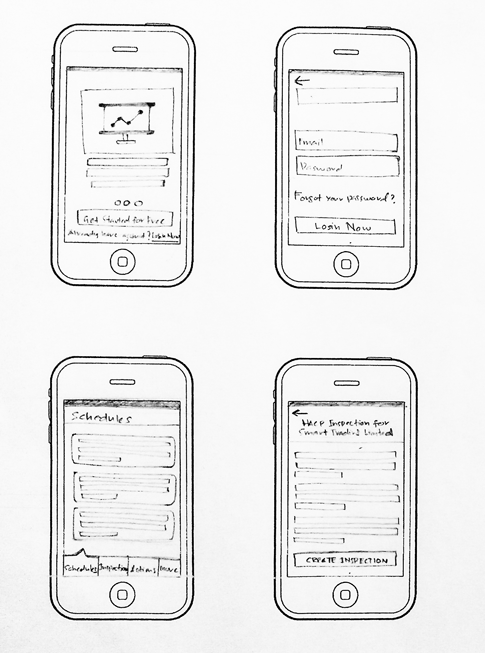 Get Started for Free
Already have a Login Now
Email
Password
Forgot your password?
Login Now
Schedules
Schedules Inspection Actions More
Inspection for
Smart Limited
CREATE INSPECTION